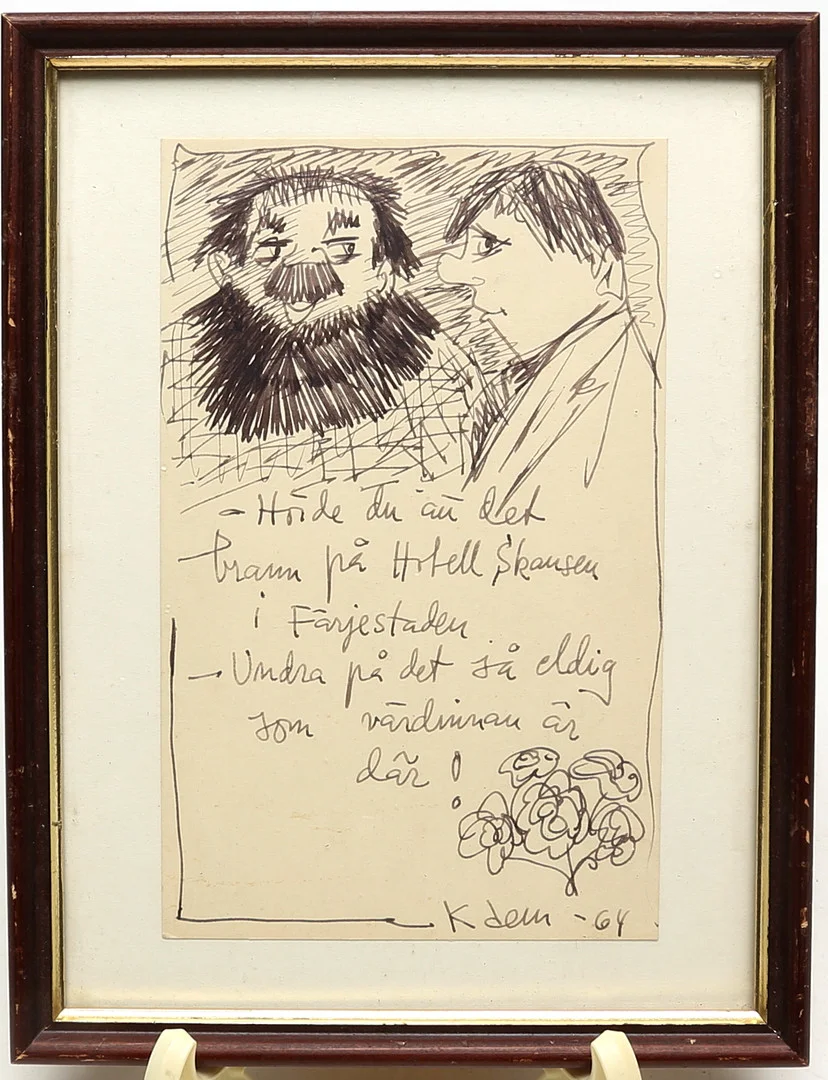 - Hörde du att det
brann på Hotell Skansen
i Färjestaden
- Undra på det så eldig
som värdinnan är
där !
- 64